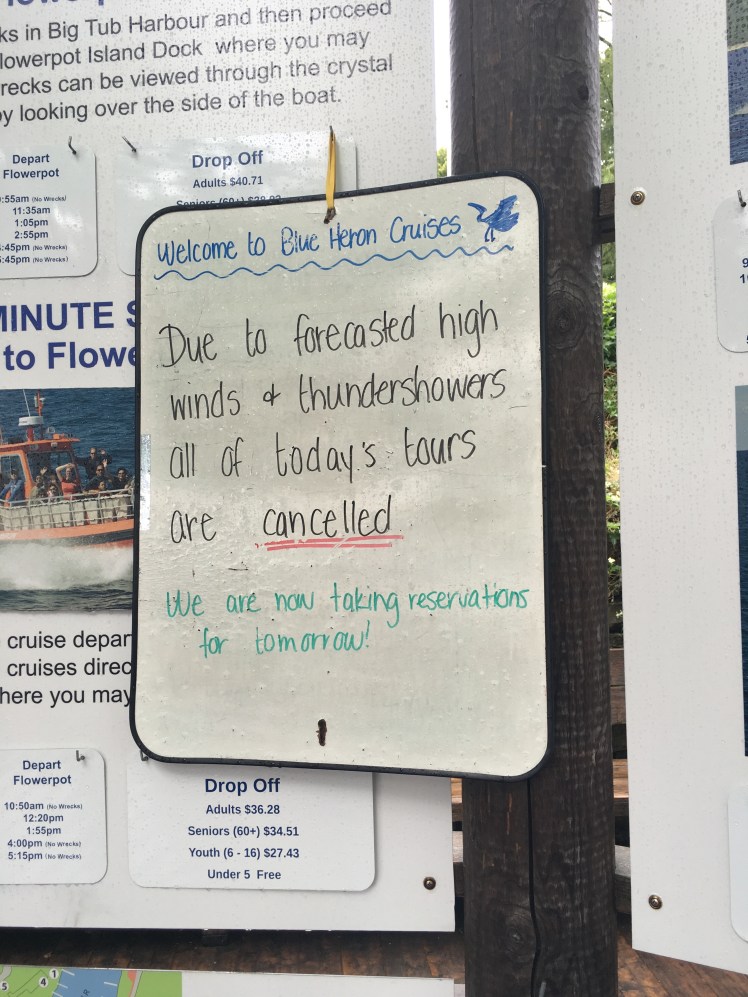 ks in Big Tub Harbour and then proceed
lowerpot Island Dock where you may
recks can be viewed through the crystal
by looking over the side of the boat.
Depart
Flowerpot
:55am (No Wrecks)
11:35am
1:05pm
2:55pm
:45pm (No Wrecks)
:45pm (No Wrecks)
Drop Off
Adults $40.71
Seniors (60+)
Welcome to Blue Heron Cruises
Due to forecasted high
winds & thundershowers
all of today's tours
are cancelled
We are now taking reservations
for tomorrow!
MINUTE S
to Flowe
cruise depar
cruises direc
here you may
Depart
Flowerpot
10:50am (No Wrecks)
12:20pm
1:55pm
4:00pm (No Wrecks)
5:15pm (No Wrecks)
Drop Off
Adults $36.28
Seniors (60+) $34.51
Youth (6 - 16) $27.43
Under 5 Free
5
4
1
9
1